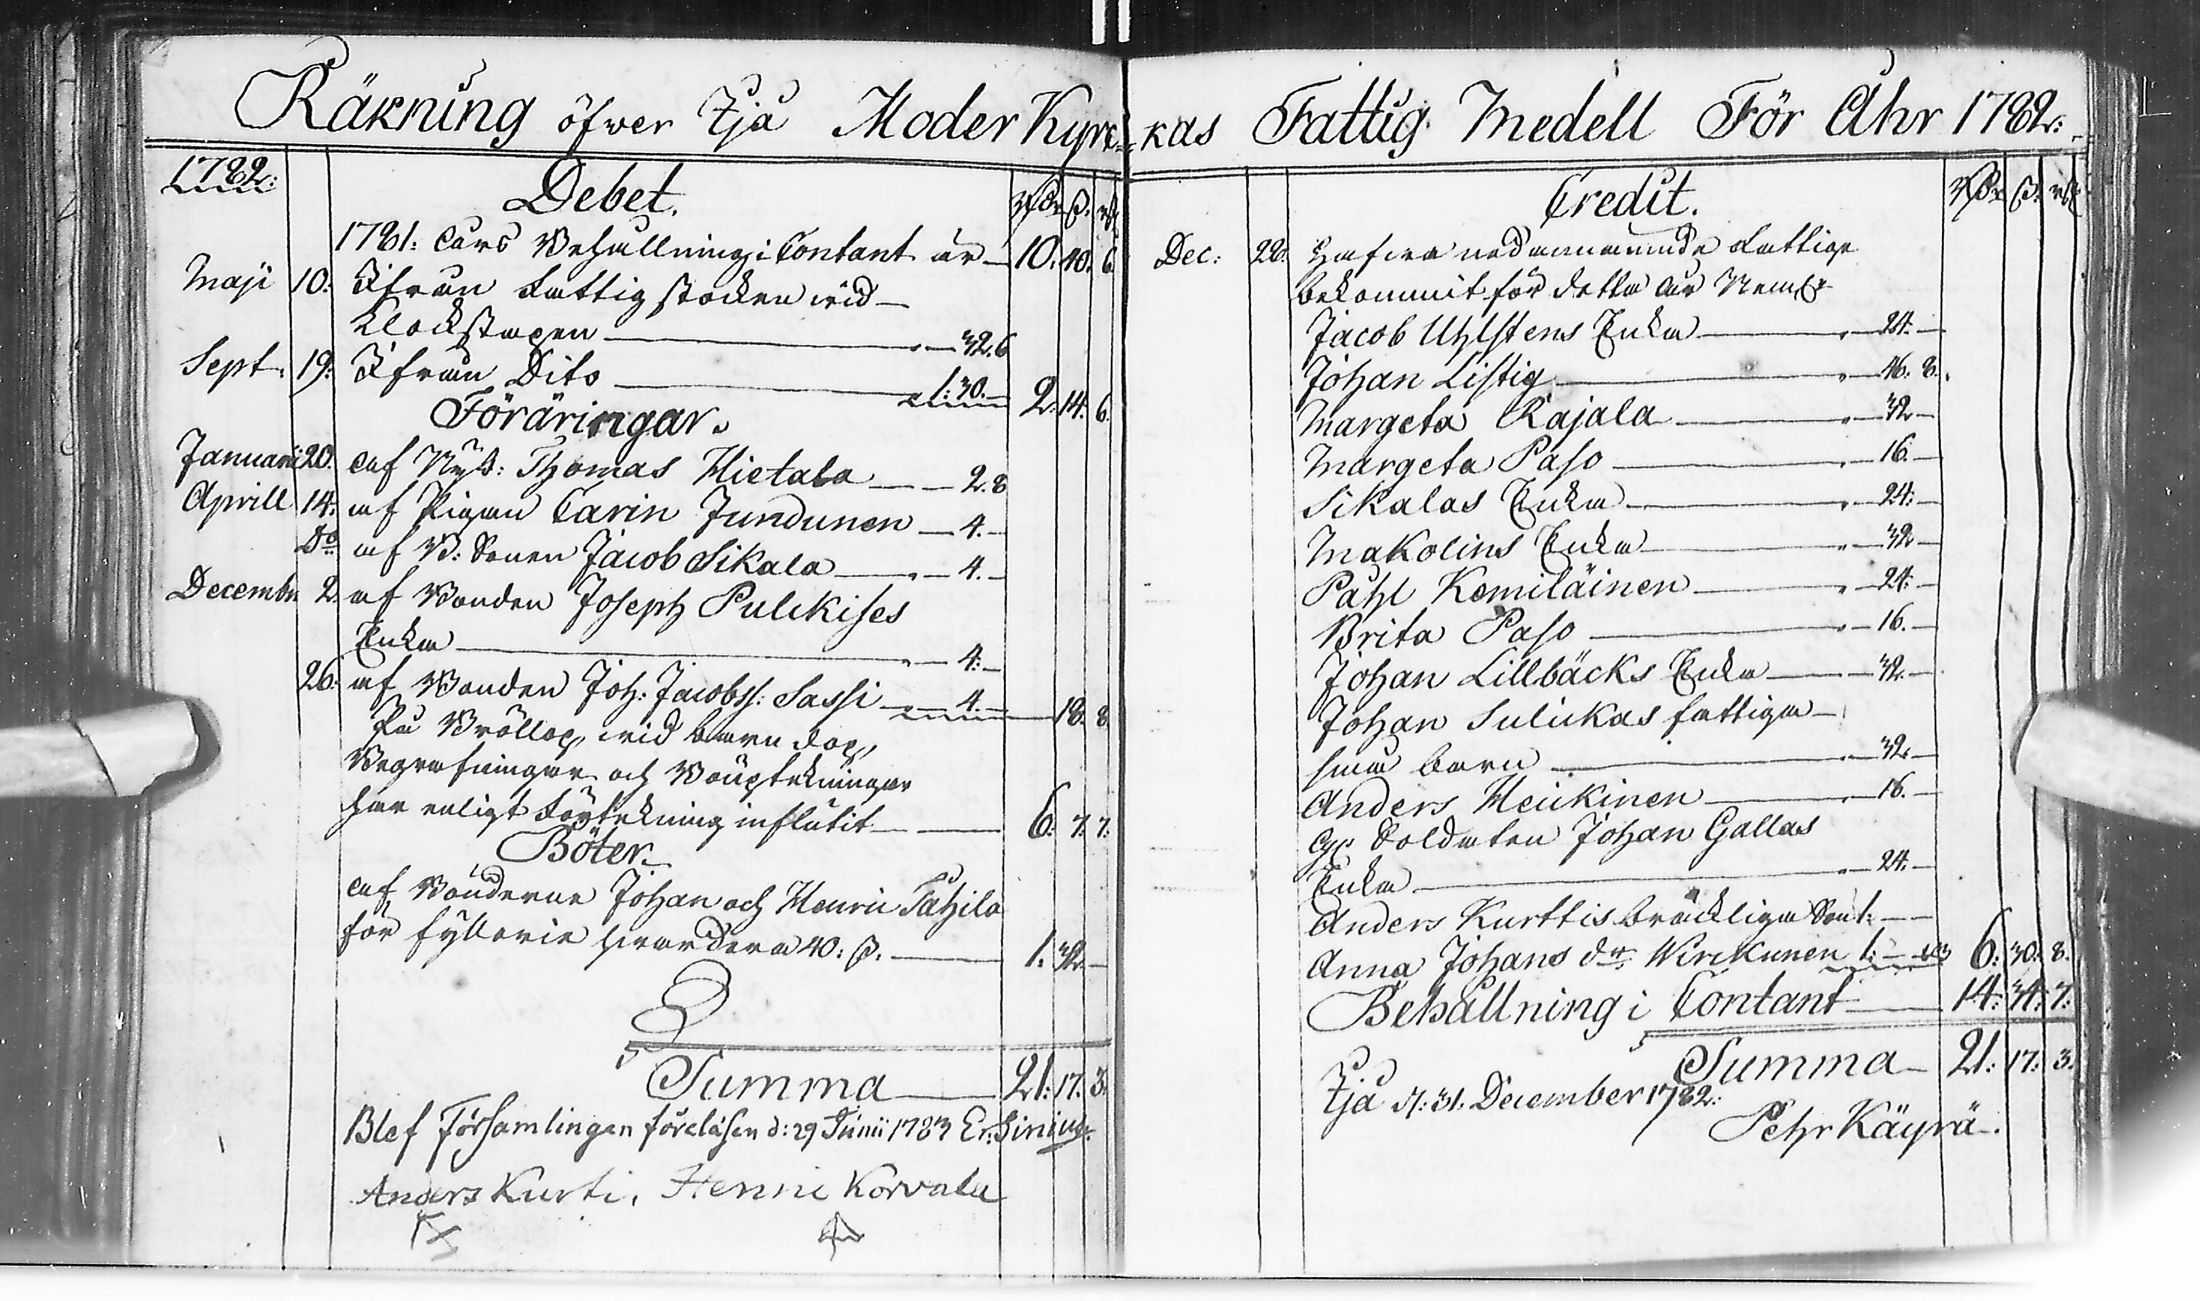 Räkning öfver Ijå Moder Kyrc-
1782:
Debet.
Rdr ß. rst
1781: Åars Behållning i Contant är — 10. 40. 6.
Maji 10: Ifrån Fattigstocken vid
Klockstapen — 32. 6
Sept. 19: Ifrån Dito — 1: 30. — 2. 14. 6.
Föräringar.
Januarii 20. af Nyb: Thomas Hietala — 2. 8
Aprill 14: af Pigan Carin Jundunen — 4. —
Do af B: Sonen Jacob Sikala — 4. —
Decembr 2. af Bonden Joseph Pulckises
Enka — 4: —
26: af Bonden Joh: Jacobss: Sassi — 4. — 18. 8.
På Bröllop, vid barndop,
Begrafningar och Bouptekningar
har enligt Förtekning influtit — 6. 7. 7.
Böter
af Bönderne Johan och Henric Tahila
för fylleri hvardera 40: ß. — 1. 32. —
Summa — 21: 17. 3.
Blef Församlingen föreläsen d: 29 Junii 1783 Er: Sinius.
Anders Kurti, Henric Korvala
kas Fattig Medell För Åhr 1782:
Credit.
Rdr ß. rst
Dec: 22. Hafva nedannämnde Fattige
bekommit för detta år Neml:
Jacob Uhlstens Enka — 24: —
Johan Listig — 46. 8.
Margeta Rajala — 32 —
Margeta Paso — 16. —
Sikalas Enka — 24: —
Makolins Enka — 32 —
Påhl Komiläinen — 24: —
Brita Paso — 16. —
Johan Lillbäcks Enka — 32. —
Johan Sulukas fattiga —
små barn — 32. —
Anders Heickinen — 16. —
Soldaten Johan Gallas
Enka — 24. —
Anders Kurttis bräckliga Son 1: —
Anna Johans dr Wirckunen 1: — 6: 30: 8.
Behållning i Contant — 14: 34: 7:
Summa — 21: 17: 3.
Ijå d: 31. December 1782:
Pehr Käyrä.